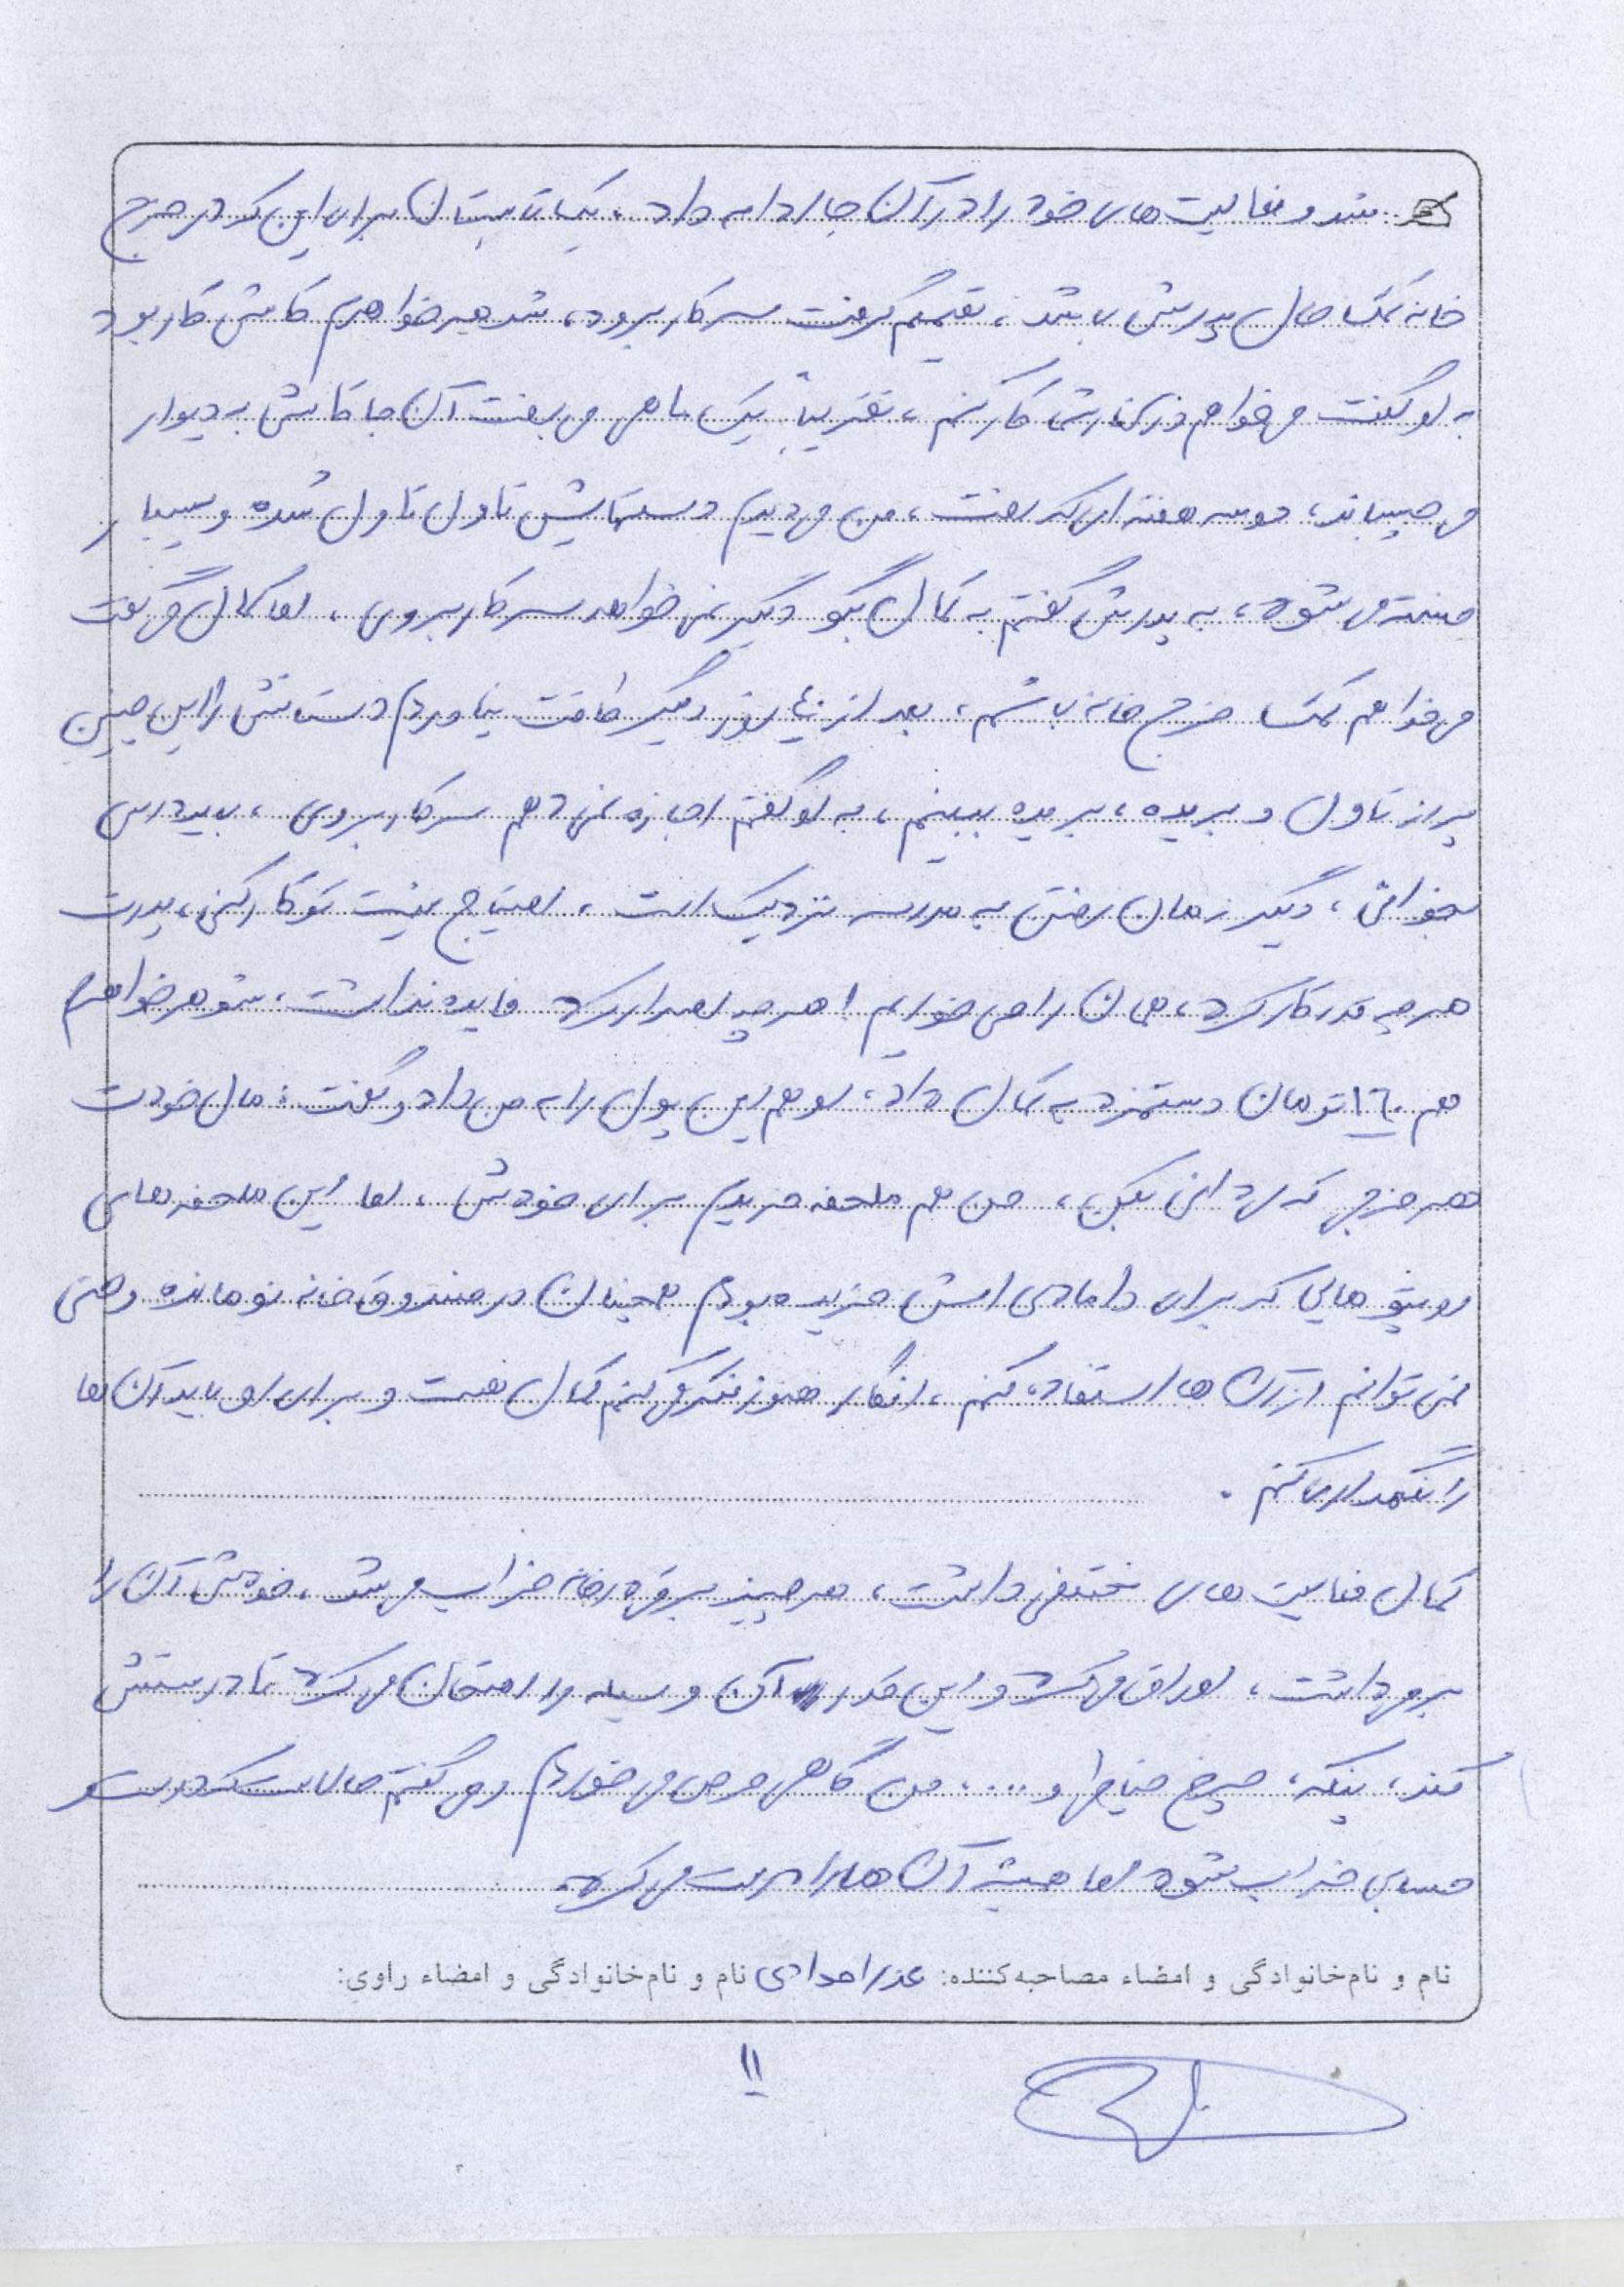 شد و فعالیت‌های خود را در آن جا ادامه داد، یک تابستان برای این که در خرج
خانه کمک حال پدرش باشد، تصمیم گرفت سر کار برود، شوهر خواهرم کاشی کار بود
به او گفت می‌خواهم در کنار شما کار کنم، تقریباً یک ماهی می‌رفت آن جا کاشی به دیوار
می‌چسباند، دو سه هفته‌ای که رفت، من می‌دیدم دستهایش تاول تاول شده و بسیار
خسته می‌شود، به پدرش گفتم به کمال بگو دیگر نمی‌خواهد سر کار بروی، اما کمال می‌گفت
می‌خواهم کمک خرج خانه باشم، بعد از روز دیگر طاقت نیاوردم دستانش را این چنین
پر از تاول و بریده، بریده ببینم، به او گفتم اجازه نمی‌دهم سر کار بروی، باید درس
بخوانی، دیگر زمان رفتن به مدرسه نزدیک است، احتیاج نیست تو کار کنی، پدرت
هر چه قدر کار کرد، همان را می‌خوریم! هر چه اصرار کرد فایده نداشت، شوهر خواهرم
هم ۱۶۰ تومان دستمزد به کمال داد، او هم این پول را به من داد و گفت: مال خودت
هر خرجی که می‌دانی بکن، من هم ملحفه خریدم برای خودش، اما این ملحفه‌های
روپتو هایی که برای دامادی اش خریده بودم همچنان در صندوق خانه نو مانده و حتی
نمی‌توانم از آن ها استفاده کنم، انگار هنوز فکر می‌کنم کمال هست و برای او باید آن ها
را نگهداری کنم.
کمال فعالیت‌های مختلفی داشت، هر چیز برقی در خانه خراب می‌شد، خودش آن را
برمی‌داشت، اوراق می‌کرد و این قدر آن وسیله را امتحان می‌کرد تا درستش
کند، پنکه، چرخ خیاطی و .... من گاهی حرص می‌خوردم و می‌گفتم حالاست که درست
حسابی خراب شود اما همیشه آن ها را درست می‌کرد.
نام و نام‌خانوادگی و امضاء مصاحبه‌کننده: عذرا امدادی نام و نام‌خانوادگی و امضاء راوی:
۱۱